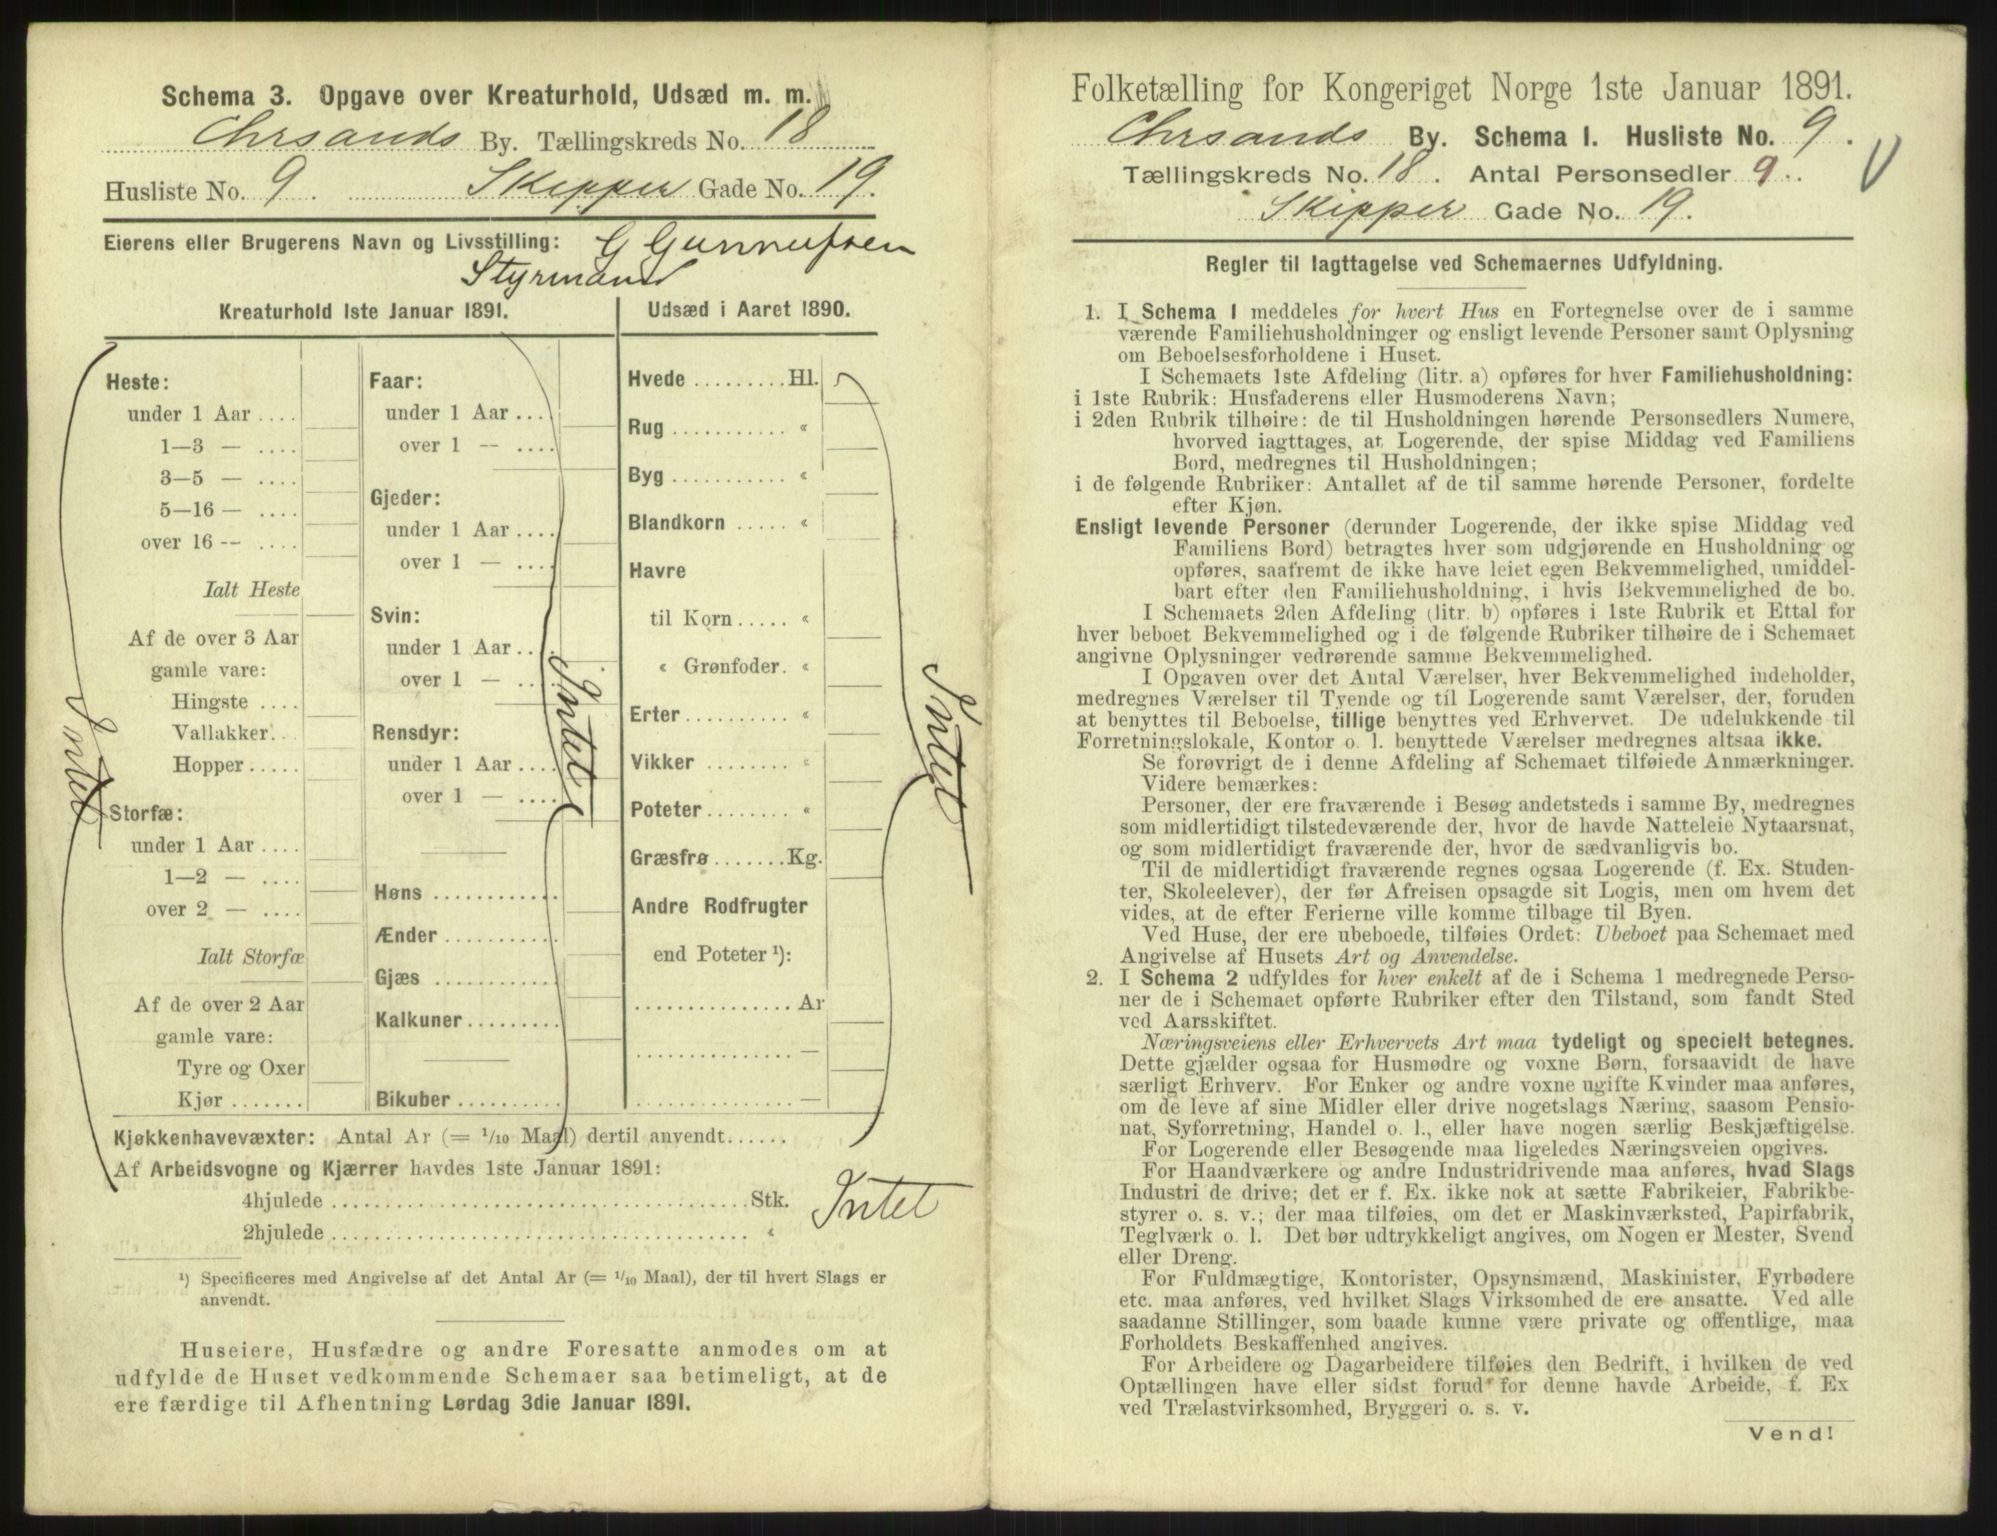 Schema 3. Opgave over Kreaturhold, Udsæd m. m.
Chrsands By. Tællingskreds No. 18
Husliste No. 9. Skipper Gade No. 19.
Eierens eller Brugerens Navn og Livsstilling: G Gunnufsen
Styrmand
Kreaturhold 1ste Januar 1891.
Heste:
under 1 Aar ....
1—3 — ....
3—5 — ....
5—16 — ....
over 16 -- ....
Ialt Heste
Af de over 3 Aar
gamle vare:
Hingste ....
Vallakker...
Hopper .....
Storfæ:
under 1 Aar ....
1—2 — ....
over 2 — ....
Ialt Storfæ
Af de over 2 Aar
gamle vare:
Tyre og Oxer
Kjør .......
Intet
Faar:
under 1 Aar ....
over 1 -- ....
Gjeder:
under 1 Aar ....
over 1 — ....
Svin:
under 1 Aar ....
over 1 — ....
Rensdyr:
under 1 Aar ....
over 1 — ....
Høns ............
Ænder ...........
Gjæs ............
Kalkuner.........
Bikuber ..........
Intet
Udsæd i Aaret 1890.
Hvede .........Hl.
Rug ........... «
Byg ........... «
Blandkorn ..... «
Havre
til Korn ..... «
« Grønfoder. «
Erter .......... «
Vikker ......... «
Poteter ........ «
Græsfrø .......Kg.
Andre Rodfrugter
end Poteter ¹):
...............Ar
............... —
............... —
Intet
Kjøkkenhavevæxter: Antal Ar (= 1/10 Maal) dertil anvendt......
Af Arbeidsvogne og Kjærrer havdes 1ste Januar 1891:
4hjulede ....................................Stk.
2hjulede .................................... «
Intet
¹) Specificeres med Angivelse af det Antal Ar (= 1/10 Maal), der til hvert Slags er
anvendt.
Huseiere, Husfædre og andre Foresatte anmodes om at
udfylde de Huset vedkommende Schemaer saa betimeligt, at de
ere færdige til Afhentning Lørdag 3die Januar 1891.
Folketælling for Kongeriget Norge 1ste Januar 1891.
Chrsands By. Schema I. Husliste No. 9.
Tællingskreds No. 18. Antal Personsedler 9.
Skipper Gade No. 19.
Regler til Iagttagelse ved Schemaernes Udfyldning.
1. I Schema 1 meddeles for hvert Hus en Fortegnelse over de i samme
værende Familiehusholdninger og ensligt levende Personer samt Oplysning
om Beboelsesforholdene i Huset.
I Schemaets 1ste Afdeling (litr. a) opføres for hver Familiehusholdning:
i 1ste Rubrik: Husfaderens eller Husmoderens Navn;
i 2den Rubrik tilhøire: de til Husholdningen hørende Personsedlers Numere,
hvorved iagttages, at Logerende, der spise Middag ved Familiens
Bord, medregnes til Husholdningen;
i de følgende Rubriker: Antallet af de til samme hørende Personer, fordelte
efter Kjøn.
Ensligt levende Personer (derunder Logerende, der ikke spise Middag ved
Familiens Bord) betragtes hver som udgjørende en Husholdning og
opføres, saafremt de ikke have leiet egen Bekvemmelighed, umiddel-
bart efter den Familiehusholdning, i hvis Bekvemmelighed de bo.
I Schemaets 2den Afdeling (litr. b) opføres i 1ste Rubrik et Ettal for
hver beboet Bekvemmelighed og i de følgende Rubriker tilhøire de i Schemaet
angivne Oplysninger vedrørende samme Bekvemmelighed.
I Opgaven over det Antal Værelser, hver Bekvemmelighed indeholder,
medregnes Værelser til Tyende og til Logerende samt Værelser, der, foruden
at benyttes til Beboelse, tillige benyttes ved Erhvervet. De udelukkende til
Forretningslokale, Kontor o. l. benyttede Værelser medregnes altsaa ikke.
Se forøvrigt de i denne Afdeling af Schemaet tilføiede Anmærkninger.
Videre bemærkes:
Personer, der ere fraværende i Besøg andetsteds i samme By, medregnes
som midlertidigt tilstedeværende der, hvor de havde Natteleie Nytaarsnat,
og som midlertidigt fraværende der, hvor de sædvanligvis bo.
Til de midlertidigt fraværende regnes ogsaa Logerende (f. Ex. Studen-
ter, Skoleelever), der før Afreisen opsagde sit Logis, men om hvem det
vides, at de efter Ferierne ville komme tilbage til Byen.
Ved Huse, der ere ubeboede, tilføies Ordet: Ubeboet paa Schemaet med
Angivelse af Husets Art og Anvendelse.
2. I Schema 2 udfyldes for hver enkelt af de i Schema 1 medregnede Perso-
ner de i Schemaet opførte Rubriker efter den Tilstand, som fandt Sted
ved Aarsskiftet.
Næringsveiens eller Erhvervets Art maa tydeligt og specielt betegnes.
Dette gjælder ogsaa for Husmødre og voxne Børn, forsaavidt de have
særligt Erhverv. For Enker og andre voxne ugifte Kvinder maa anføres,
om de leve af sine Midler eller drive nogetslags Næring, saasom Pensio-
nat, Syforretning, Handel o. l., eller have nogen særlig Beskjæftigelse.
For Logerende eller Besøgende maa ligeledes Næringsveien opgives.
For Haandværkere og andre Industridrivende maa anføres, hvad Slags
Industri de drive; det er f. Ex. ikke nok at sætte Fabrikeier, Fabrikbe-
styrer o. s. v.; der maa tilføies, om det er Maskinværksted, Papirfabrik,
Teglværk o. l. Det bør udtrykkeligt angives, om Nogen er Mester, Svend
eller Dreng.
For Fuldmægtige, Kontorister, Opsynsmænd, Maskinister, Fyrbødere
etc. maa anføres, ved hvilket Slags Virksomhed de ere ansatte. Ved alle
saadanne Stillinger, som baade kunne være private og offentlige, maa
Forholdets Beskaffenhed angives.
For Arbeidere og Dagarbeidere tilføies den Bedrift, i hvilken de ved
Optællingen have eller sidst forud for denne havde Arbeide, f. Ex
ved Trælastvirksomhed, Bryggeri o. s. v.
Vend!